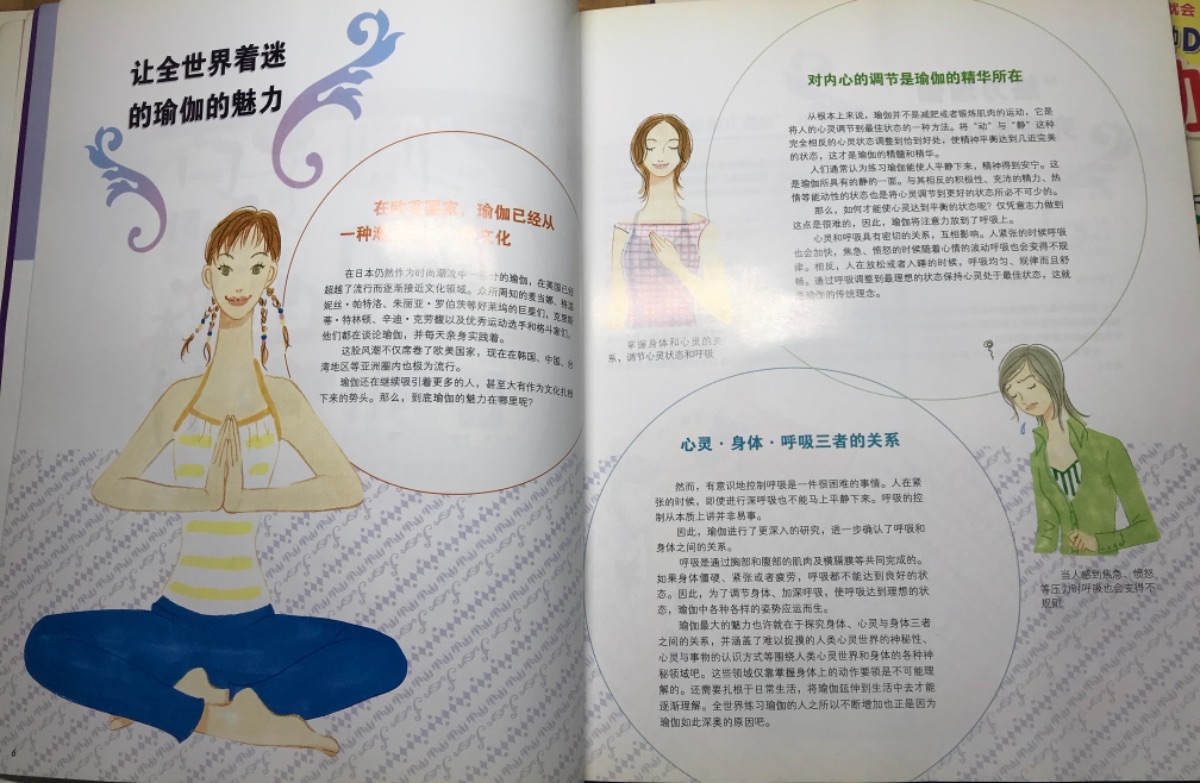 让全世界着迷
的瑜伽的魅力
在欧美国家，瑜伽已经从
一种 文化
在日本仍然作为时尚潮流中一 的瑜伽，在美国已经
超越了流行而逐渐接近文化领域。众所周知的麦当娜、格温
妮丝·帕特洛、朱丽亚·罗伯茨等好莱坞的巨星们，克里斯
蒂·特林顿、辛迪·克劳馥以及优秀运动选手和格斗家们，
他们都在谈论瑜伽，并每天亲身实践着。
这股风潮不仅席卷了欧美国家，现在在韩国、中国、台
湾地区等亚洲圈内也极为流行。
瑜伽还在继续吸引着更多的人，甚至大有作为文化扎根
下来的势头。那么，到底瑜伽的魅力在哪里呢？
6
对内心的调节是瑜伽的精华所在
从根本上来说，瑜伽并不是减肥或者锻炼肌肉的运动，它是
将人的心灵调节到最佳状态的一种方法。将“动”与“静”这种
完全相反的心灵状态调整到恰到好处，使精神平衡达到几近完美
的状态，这才是瑜伽的精髓和精华。
人们通常认为练习瑜伽能使人平静下来，精神得到安宁。这
是瑜伽所具有的静的一面。与其相反的积极性、充沛的精力、热
情等能动性的状态也是将心灵调节到更好的状态所必不可少的。
那么，如何才能使心灵达到平衡的状态呢？仅凭意志力做到
这点是很难的，因此，瑜伽将注意力放到了呼吸上。
心灵和呼吸具有密切的关系，互相影响。人紧张的时候呼吸
也会加快，焦急、愤怒的时候随着心情的波动呼吸也会变得不规
律。相反，人在放松或者入睡的时候，呼吸均匀、规律而且舒
畅。通过呼吸调整到最理想的状态保持心灵处于最佳状态，这就
是瑜伽的传统理念。
掌握身体和心灵的关
系，调节心灵状态和呼吸
心灵·身体·呼吸三者的关系
然而，有意识地控制呼吸是一件很困难的事情。人在紧
张的时候，即使进行深呼吸也不能马上平静下来。呼吸的控
制从本质上讲并非易事。
因此，瑜伽进行了更深入的研究，进一步确认了呼吸和
身体之间的关系。
呼吸是通过胸部和腹部的肌肉及横膈膜等共同完成的。
如果身体僵硬、紧张或者疲劳，呼吸都不能达到良好的状
态。因此，为了调节身体、加深呼吸，使呼吸达到理想的状
态，瑜伽中各种各样的姿势应运而生。
瑜伽最大的魅力也许就在于探究身体、心灵与身体三者
之间的关系，并涵盖了难以捉摸的人类心灵世界的神秘性、
心灵与事物的认识方式等围绕人类心灵世界和身体的各种神
秘领域吧。这些领域仅靠掌握身体上的动作要领是不可能理
解的。还需要扎根于日常生活，将瑜伽延伸到生活中去才能
逐渐理解。全世界练习瑜伽的人之所以不断增加也正是因为
瑜伽如此深奥的原因吧。
当人感到焦急、愤怒
等压力时呼吸也会变得不
规律
就会
D